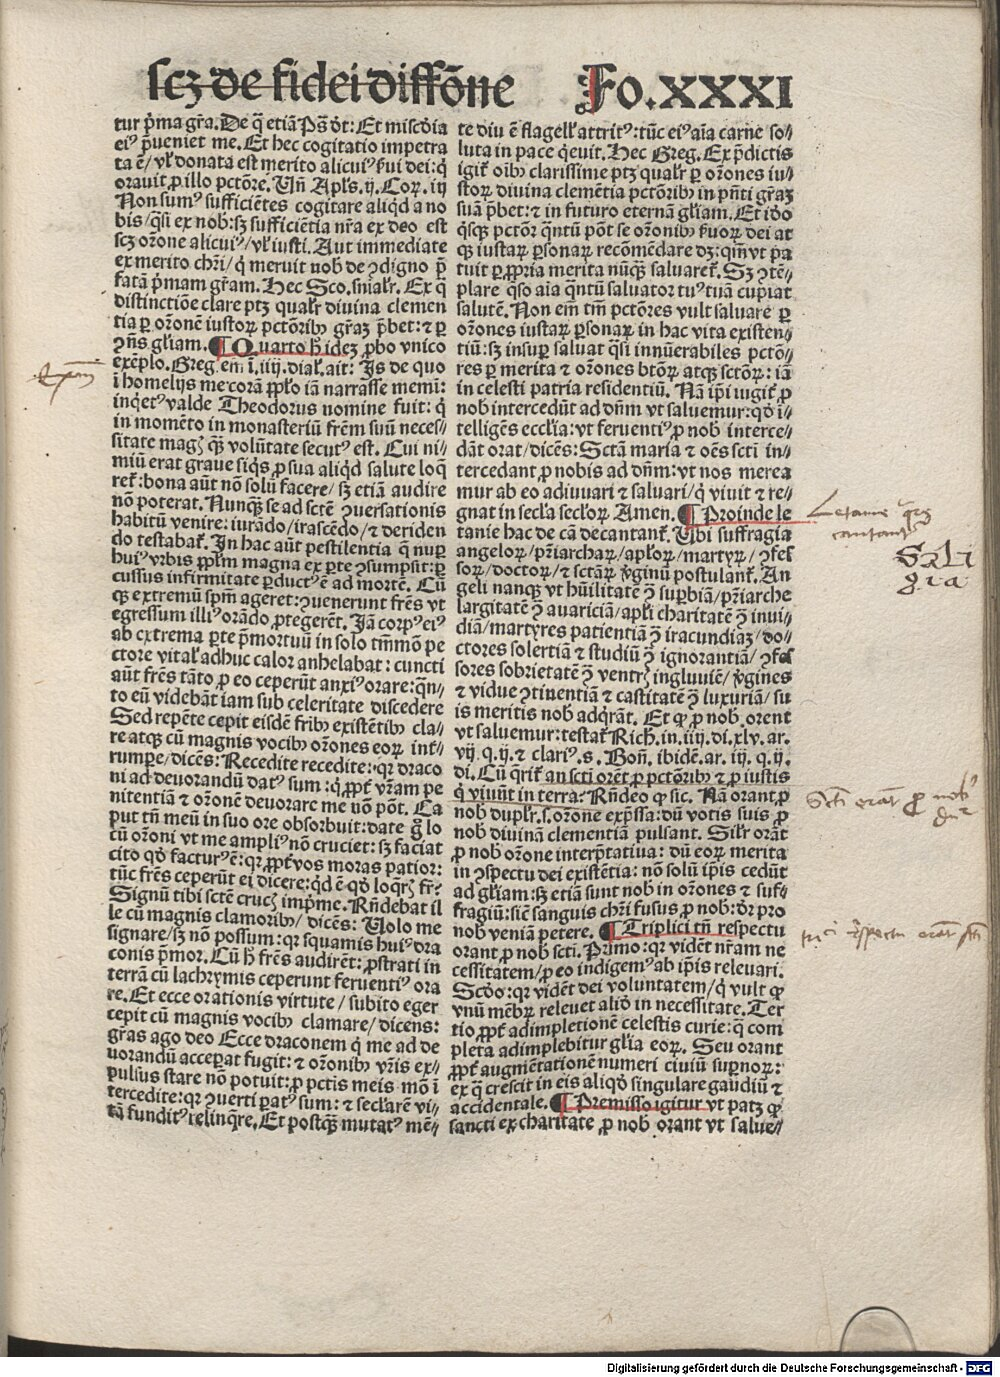 scꝫ de fidei diffōne Fo.XXXI
tur p̄ma gr̄a. De q̄ etiā Ps̄ dt̄: Et mis̄cdia
eiꝰ p̄ueniet me. Et hec cogitatio impetra
ta ē/ vl̓ donata est merito alicuiꝰ ẜui dei: q̇
orauit ꝓ illo pctōre. Un̄ Apl̄s. ij. Coꝝ. iij
Non sumꝰ sufficiētes cogitare aliqd a no
bis/ q̄si ex nob: sꝫ sufficiētia nr̄a ex deo est
scꝫ or̄one alicuiꝰ/ vl̓ iusti. Aut immediate
ex merito chr̄i/ q̇ meruit nob de ꝯdigno p̄
fatā p̄mam gr̄am. Hec Sco. sn̄ialr̓. Ex q̇
distinctiōe clare ptꝫ qualr̓ diuina clemen
tia ꝑ or̄onē iustoꝝ pctōribꝫ gr̄aꝫ p̄bet: ⁊ ꝑ
ꝯn̄s gl̄iam. ¶ Quarto h̄ ideꝫ ꝓbo vnico
exēplo. Greg. em̄ ī. iiij. dial̓. ait: Is de quo
ī homelijs me corā ppl̓o iā narrasse memi:
inq̇etꝰ valde Theodorus nomine fuit: q̇
in momēto in monasteriū frēm suū neces⸗
sitate magꝭ qꝫ volūtate secutꝰ est. Cui ni⸗
miū erat graue siq̇s ꝓ sua aliqd salute loq̄
ret̓: bona aūt nō solū facere/ sꝫ etiā audire
nō poterat. Nunqꝫ se ad sctē ꝯuersationis
habitū venire: iurādo/ irascēdo/ ⁊ deriden
do testabat̓. In hac aūt pestilentia q̄ nuꝑ
huiꝰ vrbis ppl̓m magna ex ꝑte ꝯsumpsit: ꝑ
cussus infirmitate ꝑductꝰ ē ad mortē. Cū
qꝫ extremū spm̄ ageret: ꝯuenerunt frēs vt
egressum illiꝰ orādo ꝓtegerēt. Jā corpꝰ eiꝰ
ab extrema ꝑte p̄mortuū in solo tm̄mō pe
ctore vital̓ adhuc calor anhelabat: cuncti
aūt frēs tāto ꝓ eo ceperūt anxiꝰ orare: qn̄⸗
to eū videbāt iam sub celeritate discedere
Sed repēte cepit eisdē fribꝫ existētibꝫ cla⸗
re atqꝫ cū magnis vocibꝫ or̄ones eoꝝ int̓⸗
rumpe/ dicēs: Recedite recedite: qr draco
ni ad deuorandū datꝰ sum: q̇ ꝓpt̓ vr̄am pe
nitentiā ⁊ or̄onē deuorare me nō pōt. Ca
put tn̄ meū in suo ore obsorbuit: date g̊ lo
cū or̄oni vt me ampliꝰ nō cruciet: sꝫ faciat
cito qd̓ facturꝰ ē: qr ꝓpt̓ vos moras patior:
tūc frēs ceperūt ei dicere: qd̓ ē qd̓ loq̄rꝭ fr̄?
Signū tibi sctē crucꝭ imp̄me. Rn̄debat il
le cū magnis clamoribꝫ/ dicēs: Uolo me
signare/ sꝫ nō possum: qr squamis huiꝰ dra
conis p̄mor. Cū h̄ frēs audirēt: ꝓstrati in
terrā cū lachrymis ceperunt feruentiꝰ ora
re. Et ecce orationis virtute/ subito eger
cepit cū magnis vocibꝫ clamare/ dicens:
gr̄as ago deo Ecce draconem q̇ me ad de
uorandū acceꝑat fugit: ⁊ or̄onibꝫ vr̄is ex⸗
pulsus stare nō potuit: ꝓ pctis meis mō ī
tercedite: qr ꝯuerti ꝑatꝰ sum: ⁊ sec̄larē vi⸗
tā funditꝰ relinq̄re. Et postqꝫ mutatꝰ mē⸗
te diu ē flagell̓ attritꝰ: tūc eiꝰ aīa carne so⸗
luta in pace q̇euit. Hec Greg. Ex p̄dictis
igit̓ oībꝫ clarissime ptꝫ qualr̓ ꝑ or̄ones iu⸗
stoꝝ diuina clemētia pctōribꝫ in pn̄ti gr̄aꝫ
suā p̄bet: ⁊ in futuro eternā gl̄iam. Et idō
q̇sqꝫ pctōr q̄ntū pōt se or̄onibꝫ ẜuoꝝ dei at
qꝫ iustaꝝ ꝑsonaꝝ recōmēdare dꝫ: qm̄ vt pa
tuit ꝑ ꝓpria merita nūqꝫ saluaret̓. Sꝫ ꝯtē⸗
plare q̄so aīa q̄ntū saluator tuꝰ tuā cupiat
salutē. Non em̄ tm̄ pctōres vult saluare ꝑ
or̄ones iustaꝝ ꝑsonaꝝ in hac vita existen⸗
tiū: sꝫ insuꝑ saluat q̄si innūerabiles pctō⸗
res ꝑ merita ⁊ or̄ones btōꝝ atqꝫ sctōꝝ: iā
in celesti patria residentiū. Nā ip̄i iugit̓ ꝓ
nob intercedūt ad dn̄m vt saluemur: qd̓ ī⸗
telligēs eccl̄ia: vt feruentiꝰ ꝓ nob interce⸗
dāt orat/ dicēs: Sctā maria ⁊ oēs scti in⸗
tercedant ꝓ nobis ad dn̄m: vt nos merea
mur ab eo adiuuari ⁊ saluari/ q̇ viuit ⁊ re⸗
gnat in secl̄a secl̄oꝝ Amen. ¶ Proinde le
tanie hac de cā decantant̓. Ubi suffragia
angeloꝝ/ pr̄iarchaꝝ/ apl̄oꝝ/ martyꝝ/ ꝯfes
soꝝ/ doctoꝝ/ ⁊ sctāꝝ v̓ginū postulant̓. An
geli nanqꝫ vt hūilitatē ꝯ̄ suꝑbiā/ pr̄iarche
largitatē ꝯ̄ auariciā/ apl̄i charitatē ꝯ̄ inui⸗
diā/ martyres patientiā ꝯ̄ iracundiaꝫ/ do⸗
ctores solertiā ⁊ studiū ꝯ̄ ignorantiā/ ꝯfes
sores sobrietatē ꝯ̄ ventrꝭ ingluuiē/ v̓gines
⁊ vidue ꝯtinentiā ⁊ castitatē ꝯ̄ luxuriā/ su
is meritis nob adq̇rāt. Et ꝙ ꝓ nob orent
vt saluemur: testat̓ Rich. in. iiij. di. xlv. ar.
vij. q. ij. ⁊ clariꝰ. s. Bon̄. ibidē. ar. iij. q. ij.
di. Cū q̄rit̓ an scti orēt ꝓ pctōribꝫ ⁊ ꝓ iustis
q̇ viuūt in terra: Rn̄deo ꝙ sic. Nā orant ꝓ
nob duplr̓. s. or̄one exp̄ssa: dū votis suis ꝓ
nob diuinā clementiā pulsant. Silr̓ orāt
ꝓ nob or̄one interp̄tatiua: dū eoꝝ merita
in ꝯspectu dei existētia: nō solū ip̄is cedūt
ad gl̄iam: sꝫ etiā sunt nob in or̄ones ⁊ suf⸗
fragiū: sic̄ sanguis chr̄i fusus ꝓ nob: dr̄ pro
nob veniā petere. ¶ Triplici tn̄ respectu
orant ꝓ nob scti. Primo: qr vidēt nr̄am ne
cessitatem/ ꝓ eo indigemꝰ ab ip̄is releuari.
Scdo: qr vidēt dei voluntatem/ q̇ vult ꝙ
vnū mēbꝝ releuet aliō in necessitate. Ter
tio ꝓpt̓ adimpletionē celestis curie: q̄ com
pleta adimplebitur gl̄ia eoꝝ. Seu orant
ꝓpt̓ augmētationē numeri ciuiū suꝑnoꝝ:
ex q̄ crescit in eis aliqd̓ singulare gaudiū ⁊
accidentale. ¶ Premisso igitur vt patꝫ ꝙ
sancti ex charitate ꝓ nob orant vt salue⸗
Letanie
cantant
Scti orāt ꝓ nob
Digitalisierung gefördert durch die Deutsche Forschungsgemeinschaft - DFG